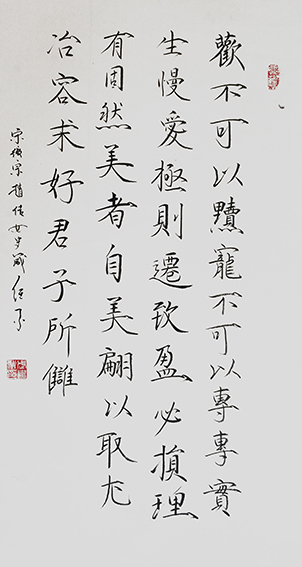 歡不可以黷寵不可以專專實
生慢愛極則遷致盈必損理
有固然美者自美翩以取尤
冶容求好君子所讎
宋儀宗趙佶女史箴任系